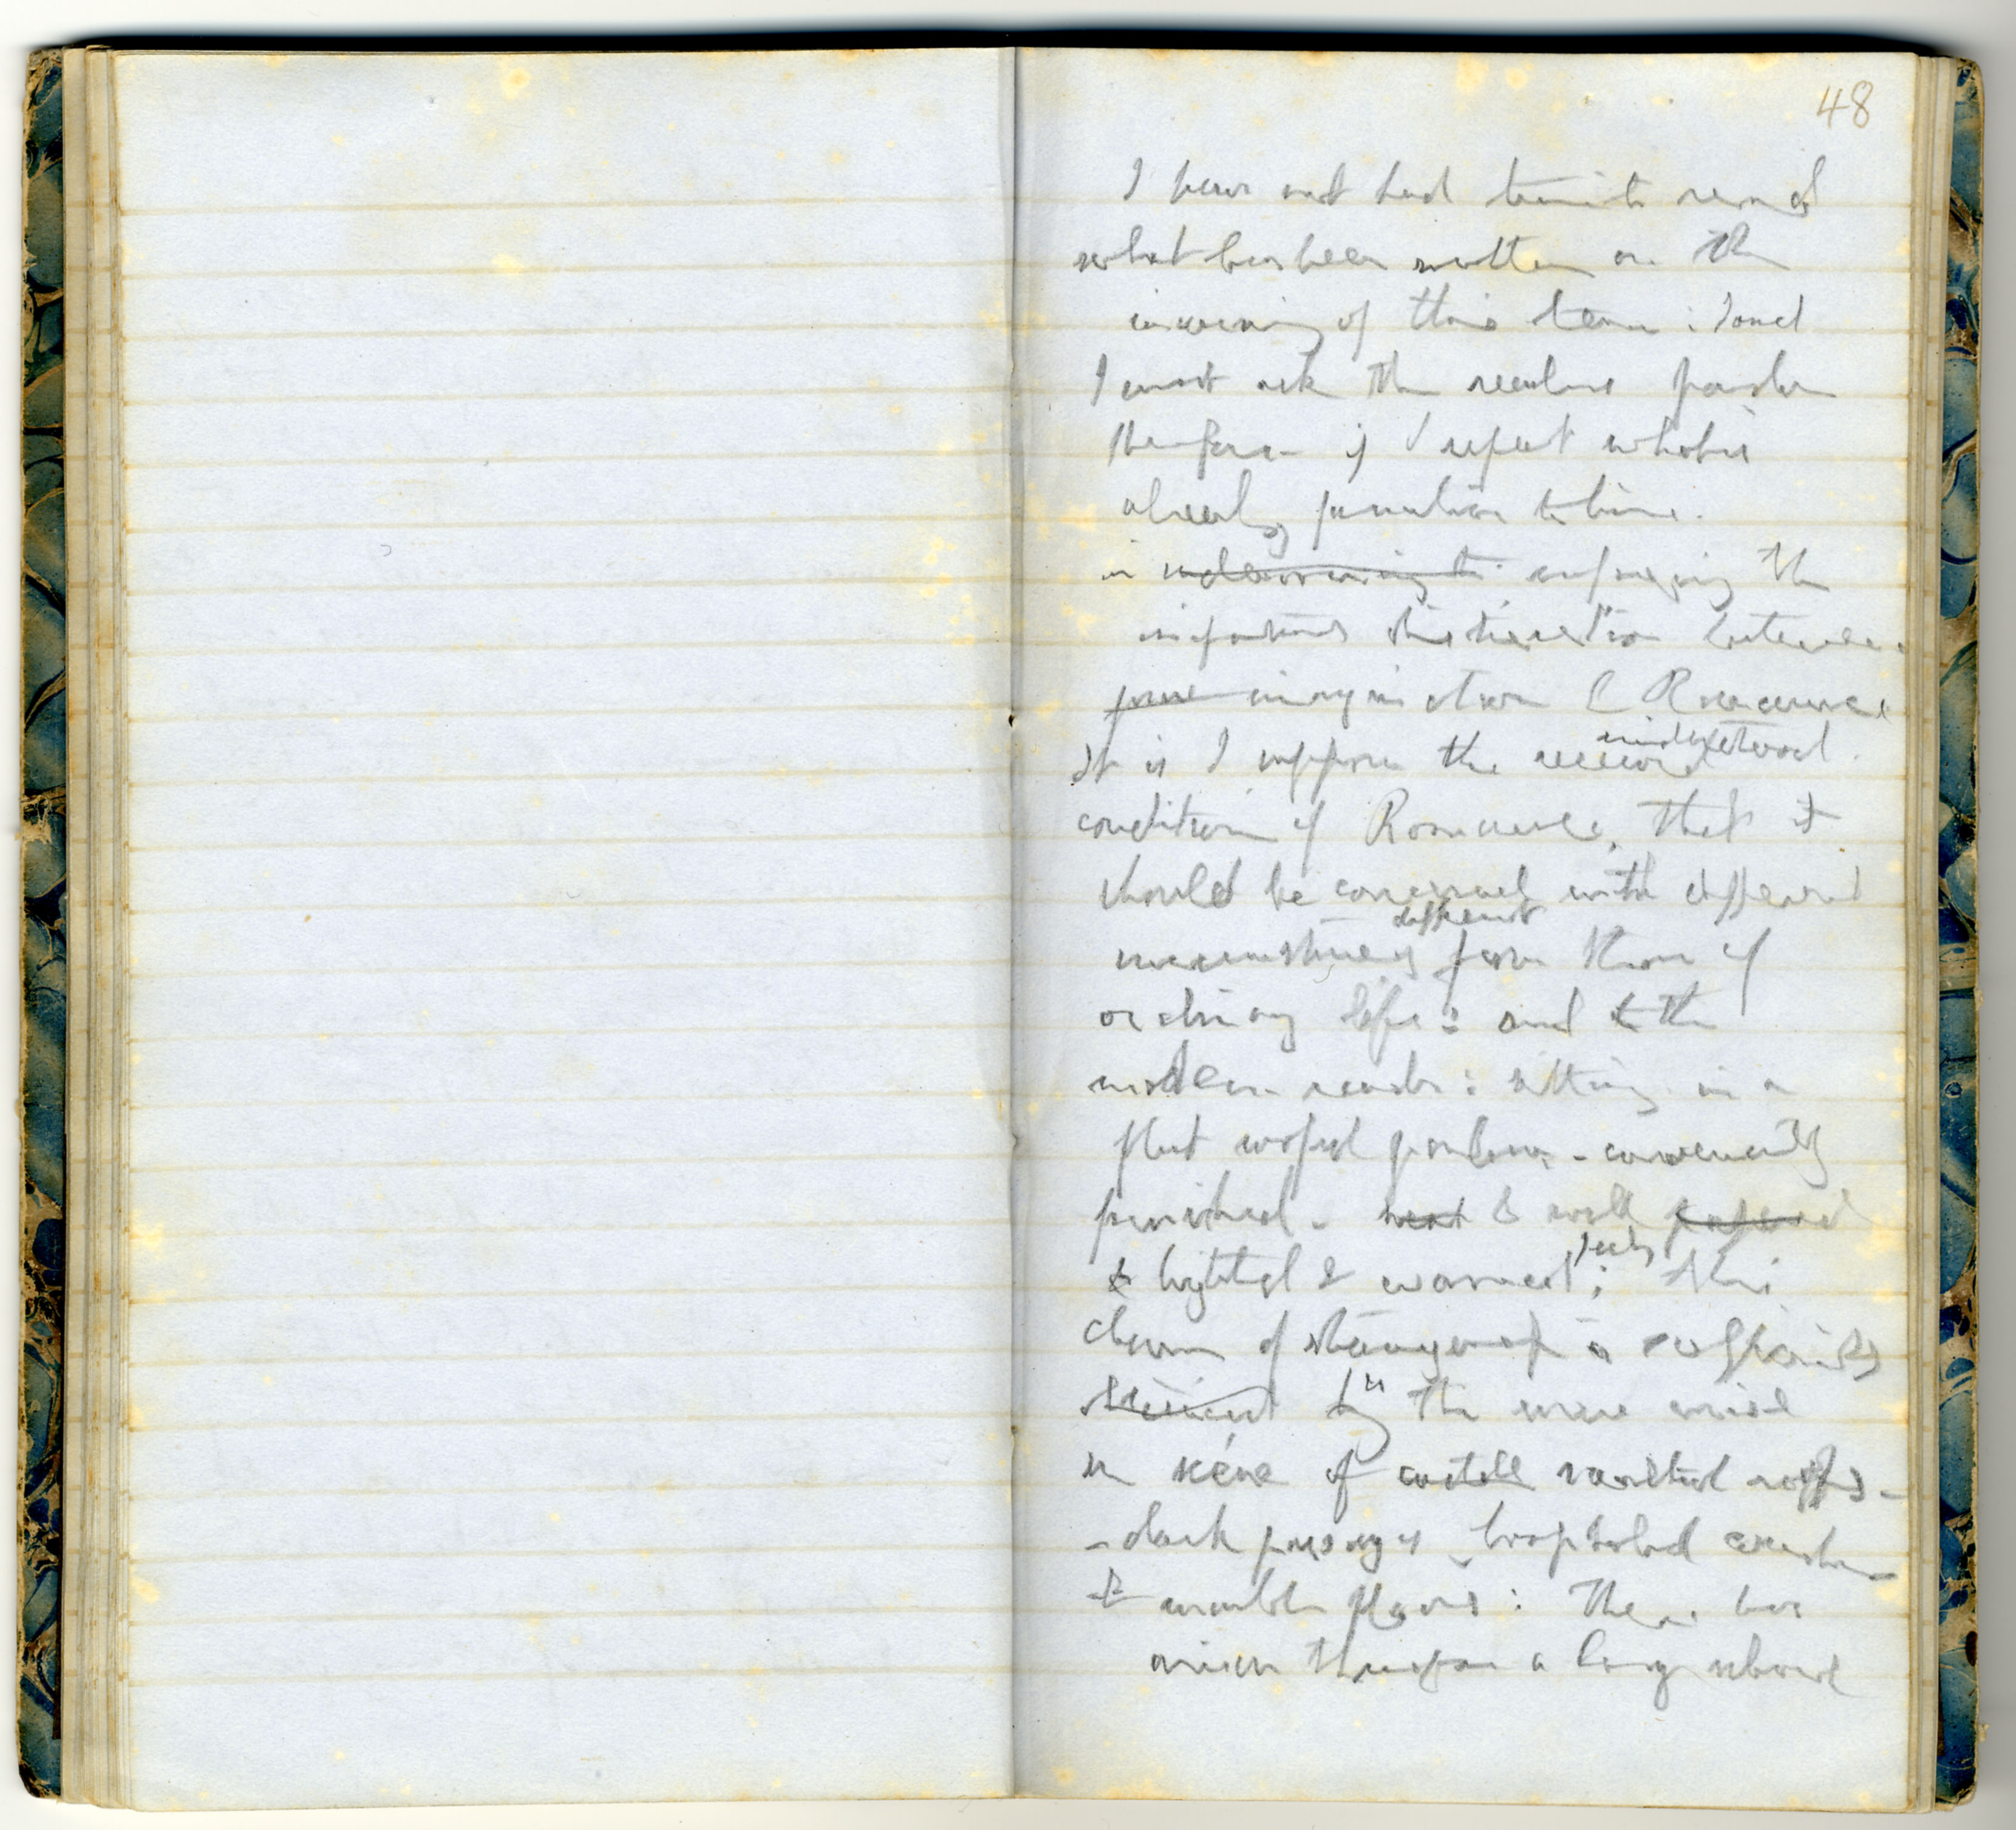 48
I have not had time to read
what has been written on the
meaning of this term : and
I must ask the readers pardon
therefore if I repeat what is
already familiar to him.
in endeavouring to enforcing the
important distinction between
pure imagination & Romance
understood
It is I suppose the received
condition of Romance, that it
should be concerned with different
different
circumstances from those of
ordinary life : and to the
modern reader : sitting in a
flat roofed parlour - conveniently
furnished - neat & well papered
& lighted & warmed ; this
charm of strangeness is sufficiently
by in the mere mise
en scéne of castle vaulted roofs -
- dark passages - loopholed
& marble floors : There has
arisen therefore a large school